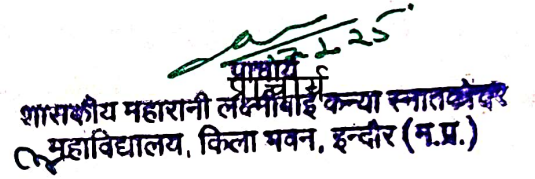 प्राचार्य
शासकीय महारानी लक्ष्मीबाई कन्या स्नातकोत्तर
महाविद्यालय, किला भवन, इन्दौर (म.प्र.)